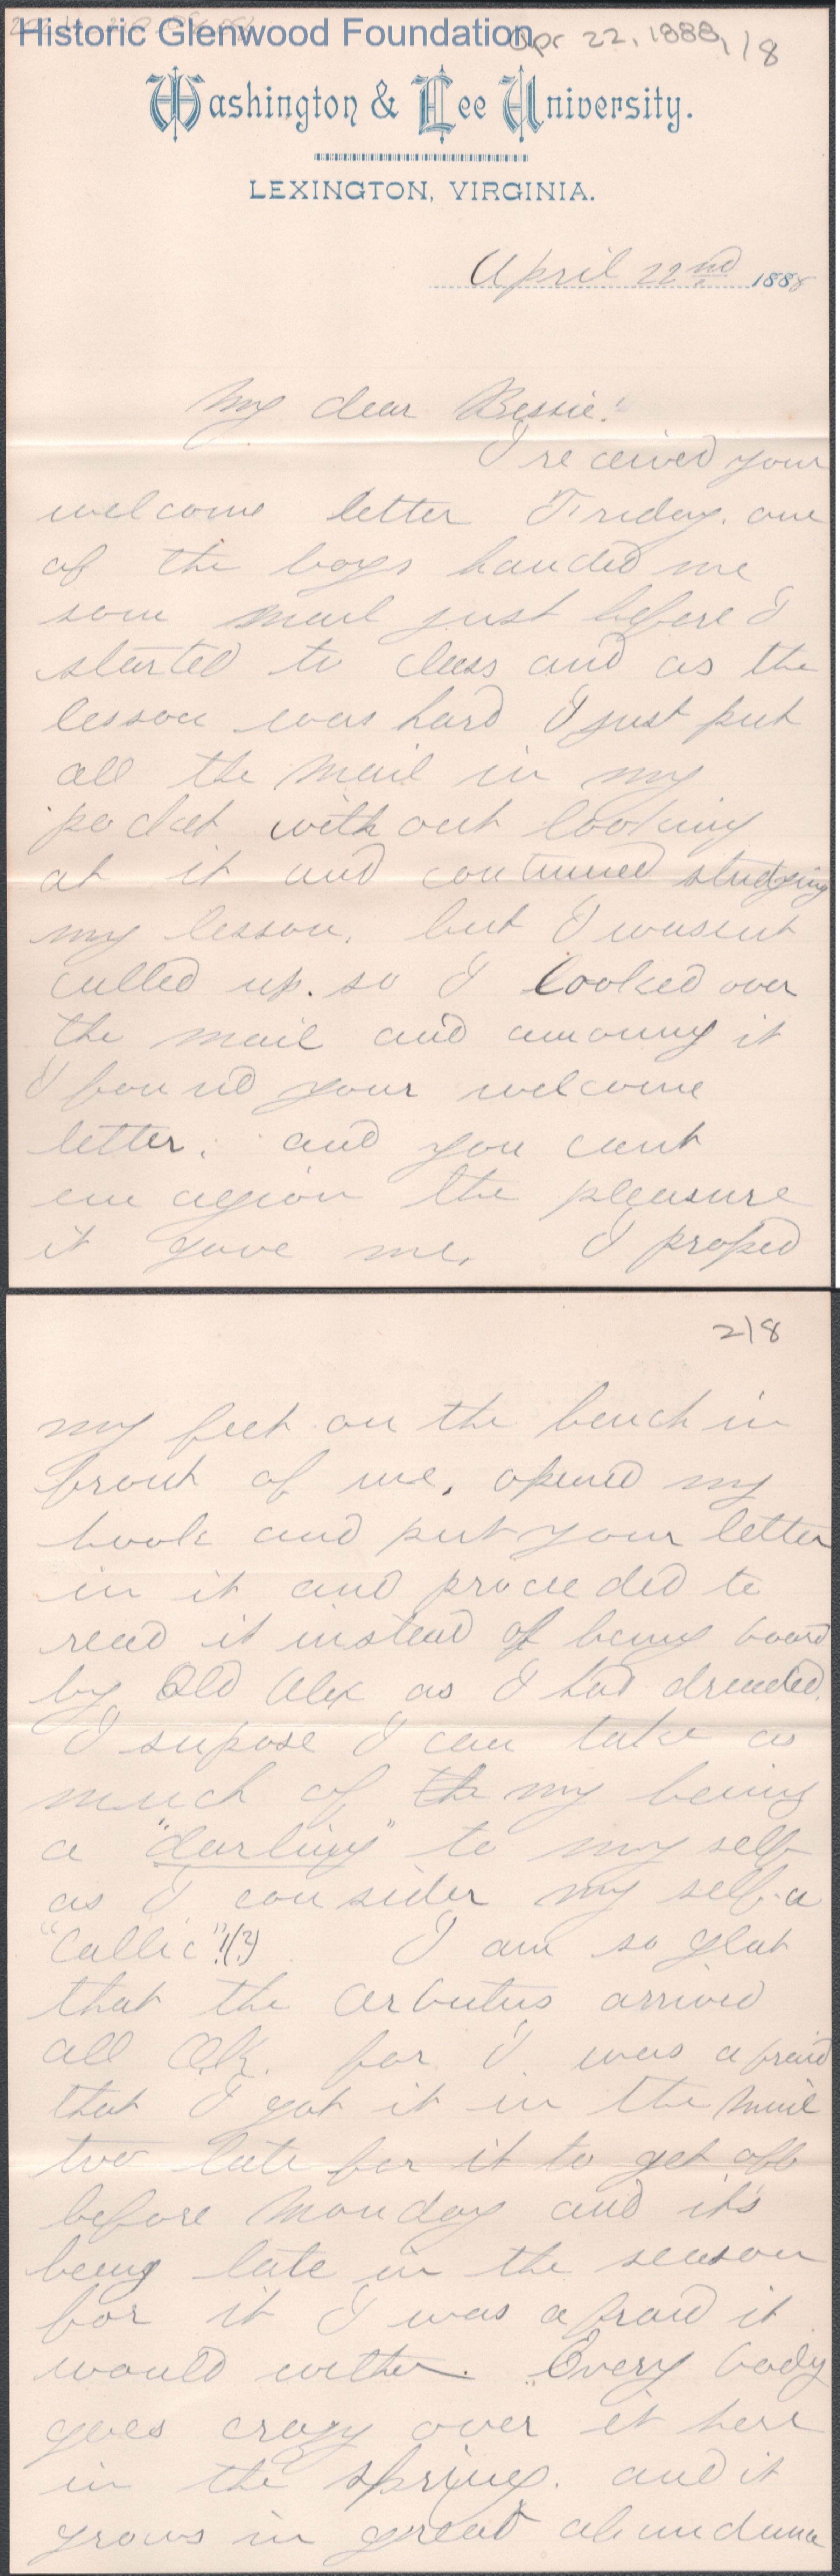 Historic Glenwood Foundation
Apr 22, 1888, 1/8
Washington & Lee University.
LEXINGTON, VIRGINIA.
April 22nd 1888
My dear Bessie!
I received your
welcome letter Friday. one
of the boys handed me
some mail just before I
started to class and as the
lesson was hard I just put
all the mail in my
pocket with out looking
at it and continued studying
my lesson, but I wasent
called up. so I looked over
the mail and amoung it
I found your welcome
letter; and you cant
emagion the pleasure
it gave me. I proped
2/8
my feet on the bench in
front of me, opened my
book and put your letter
in it and proceeded to
read it instead of being bored
by Old Alex as I had dreaded.
I supose I can take as
much of the my being
a "darling" to my self
as I consider my self a
"Callic"!(?) I am so glat
that the Arbutus arrived
all O.K. for I was afraid
that I got it in the mail
two late for it to get off
before Monday and its
being late in the season
for it I was afraid it
would wither. Every body
goes crazy over it here
in the spring. and it
grows in great abundance